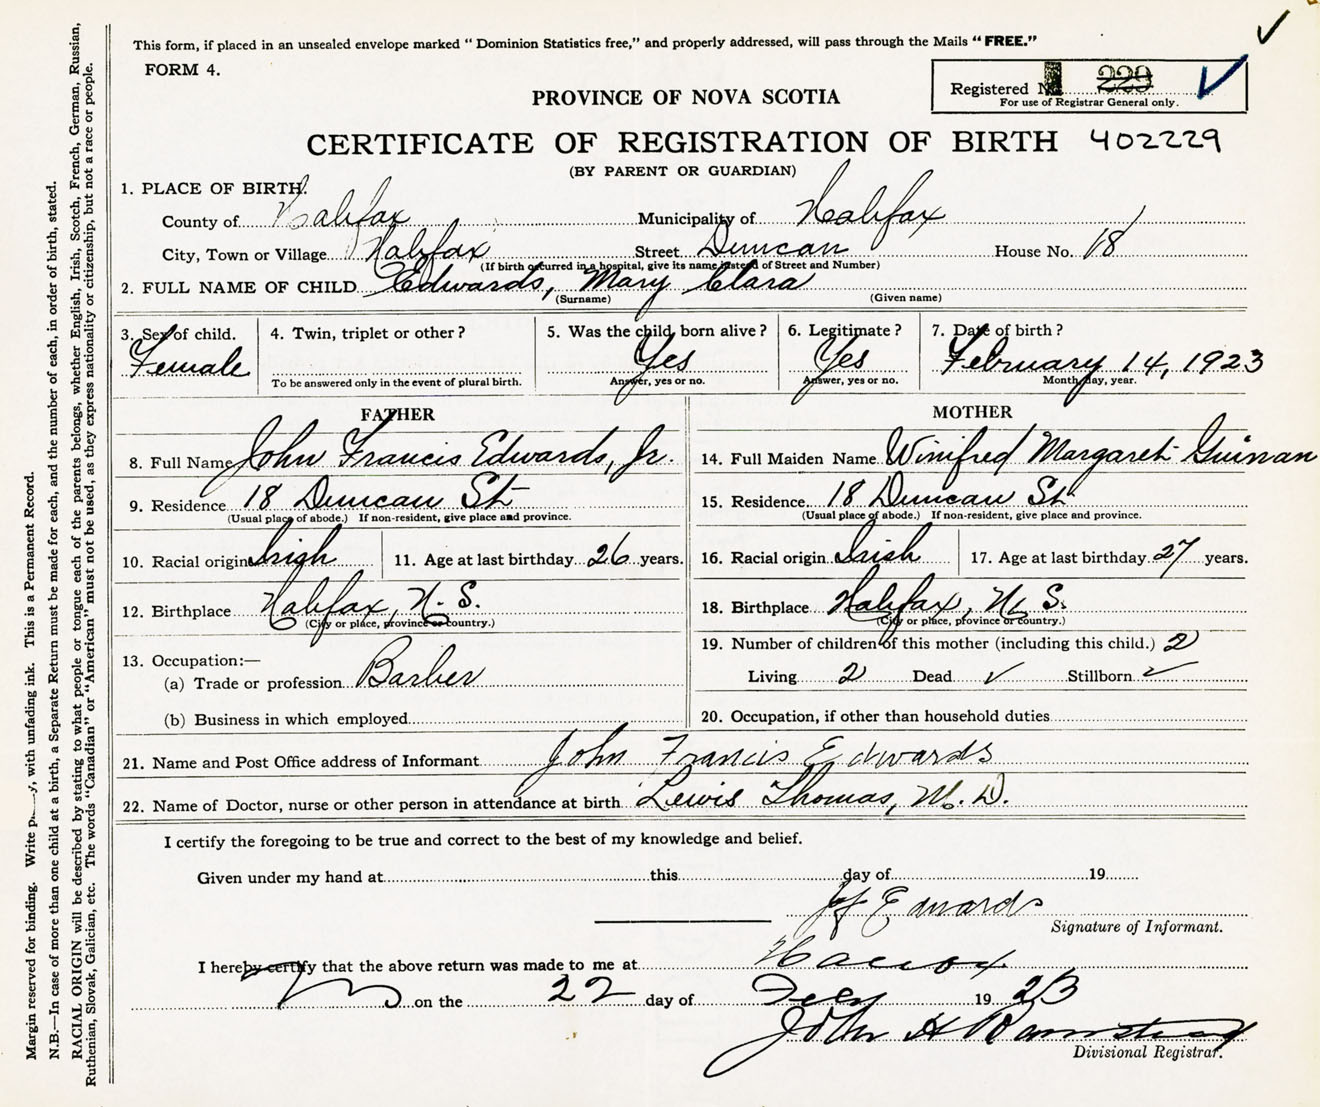 This form, if placed in an unsealed envelope marked " Dominion Statistics free," and properly addressed, will pass through the Mails "FREE."
FORM 4.
Registered 229
For use of Registrar General only.
PROVINCE OF NOVA SCOTIA
CERTIFICATE OF REGISTRATION OF BIRTH 402229
(BY PARENT OR GUARDIAN)
1. PLACE OF BIRTH.
County of Halifax Municipality of Halifax
City, Town or Village Halifax Street Duncan House No. 18
(If birth occurred in a hospital, give its name instead of Street and Number)
2. FULL NAME OF CHILD Edwards, Mary Clara
(Surname) (Given name)
3. Sex of child. 4. Twin, triplet or other? 5. Was the child born alive? 6. Legitimate? 7. Date of birth?
Female Yes Yes February 14, 1923
To be answered only in the event of plural birth. Answer, yes or no. Answer, yes or no. Month, day, year.
FATHER MOTHER
8. Full Name John Francis Edwards, Jr. 14. Full Maiden Name Winifred Margaret Guinan
9. Residence 18 Duncan St 15. Residence 18 Duncan St.
(Usual place of abode.) If non-resident, give place and province. (Usual place of abode.) If non-resident, give place and province.
10. Racial origin Irish 11. Age at last birthday 26 years. 16. Racial origin Irish 17. Age at last birthday 27 years.
12. Birthplace Halifax, N. S. 18. Birthplace Halifax, N. S.
(City or place, province or country.) (City or place, province or country.)
19. Number of children of this mother (including this child.) 2
13. Occupation:—
(a) Trade or profession Barber Living 2 Dead ✓ Stillborn ✓
(b) Business in which employed 20. Occupation, if other than household duties
21. Name and Post Office address of Informant John Francis Edwards
22. Name of Doctor, nurse or other person in attendance at birth Lewis Thomas, M. D.
I certify the foregoing to be true and correct to the best of my knowledge and belief.
Given under my hand at this day of 19
JF Edwards
Signature of Informant.
I hereby certify that the above return was made to me at Halifax
on the 22 day of Feby 19 23
John A
Divisional Registrar.
Margin reserved for binding. Write with unfading ink. This is a Permanent Record.
N.B.—In case of more than one child at a birth, a Separate Return must be made for each, and the number of each, in order of birth, stated.
RACIAL ORIGIN will be described by stating to what people or tongue each of the parents belongs, whether English, Irish, Scotch, French, German, Russian,
Ruthenian, Slovak, Galician, etc. The words "Canadian" or "American" must not be used, as they express nationality or citizenship, but not a race or people.